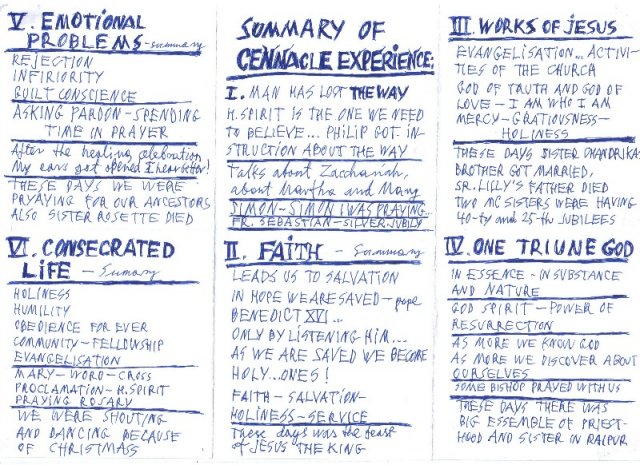 SUMMARY OF
CENNACLE EXPERIENCE:
I. MAN HAS LOST THE WAY
H.SPIRIT IS THE ONE WE NEED
TO BELIEVE... PHILIP GOT IN-
STRUCTION ABOUT THE WAY
Talks about Zacchariah,
about Martha and Mary
SIMON-SIMON I WAS PRAYING...
FR. SEBASTIAN-SILVER JUBILY
II. FAITH - Summary
LEADS US TO SALVATION
IN HOPE WE ARE SAVED-pope
BENEDICT XVI...
ONLY BY LISTENING HIM...
AS WE ARE SAVED WE BECOME
HOLY...ONES!
FAITH-SALVATION-
HOLINESS-SERVICE
These days was the feast
of JESUS THE KING
III WORKS OF JESUS
EVANGELISATION... ACTIVI-
TIES OF THE CHURCH
GOD OF TRUTH AND GOD OF
LOVE-I AM WHO I AM
MERCY-GRATIOUSNESS-
HOLINESS
THESE DAYS SISTER CHANDRIKA:
BROTHER GOT MARRIED,
SR.LILLY'S FATHER DIED
TWO MC SISTERS WERE HAVING
40-ty and 25-th JUBILEES
IV. ONE TRIUNE GOD
IN ESSENCE-IN SUBSTANCE
AND NATURE
GOD SPIRIT-POWER OF
RESURRECTION
AS MORE WE KNOW GOD
AS MORE WE DISCOVER ABOUT
OURSELVES
SOME BISHOP PRAYED WITH US
THESE DAYS THERE WAS
BIG ESSEMBLE OF PRIEST-
HOOD AND SISTER IN RAIPUR
V. EMOTIONAL
PROBLEMS-summary
REJECTION
INFIRIORITY
GUILT CONSCIENCE
ASKING PARDON-SPENDING
TIME IN PRAYER
After the healing celebration
My ears got opened I hear better!
THESE DAYS WE WERE
PRYAYING FOR OUR ANCESTORS
ALSO SISTER ROSETTE DIED
VI. CONSECRATED
LIFE - Sumary
HOLINESS
HUMILITY
OBEDIENCE FOR EVER
COMMUNITY-FELLOWSHIP
EVANGELISATION
MARY-WORD-CROSS
PROCLAMATION-H.SPIRIT
PRAYING ROSARY
WE WERE SHOUTING
AND DANCING BECAUSE
OF CHRISTMASS